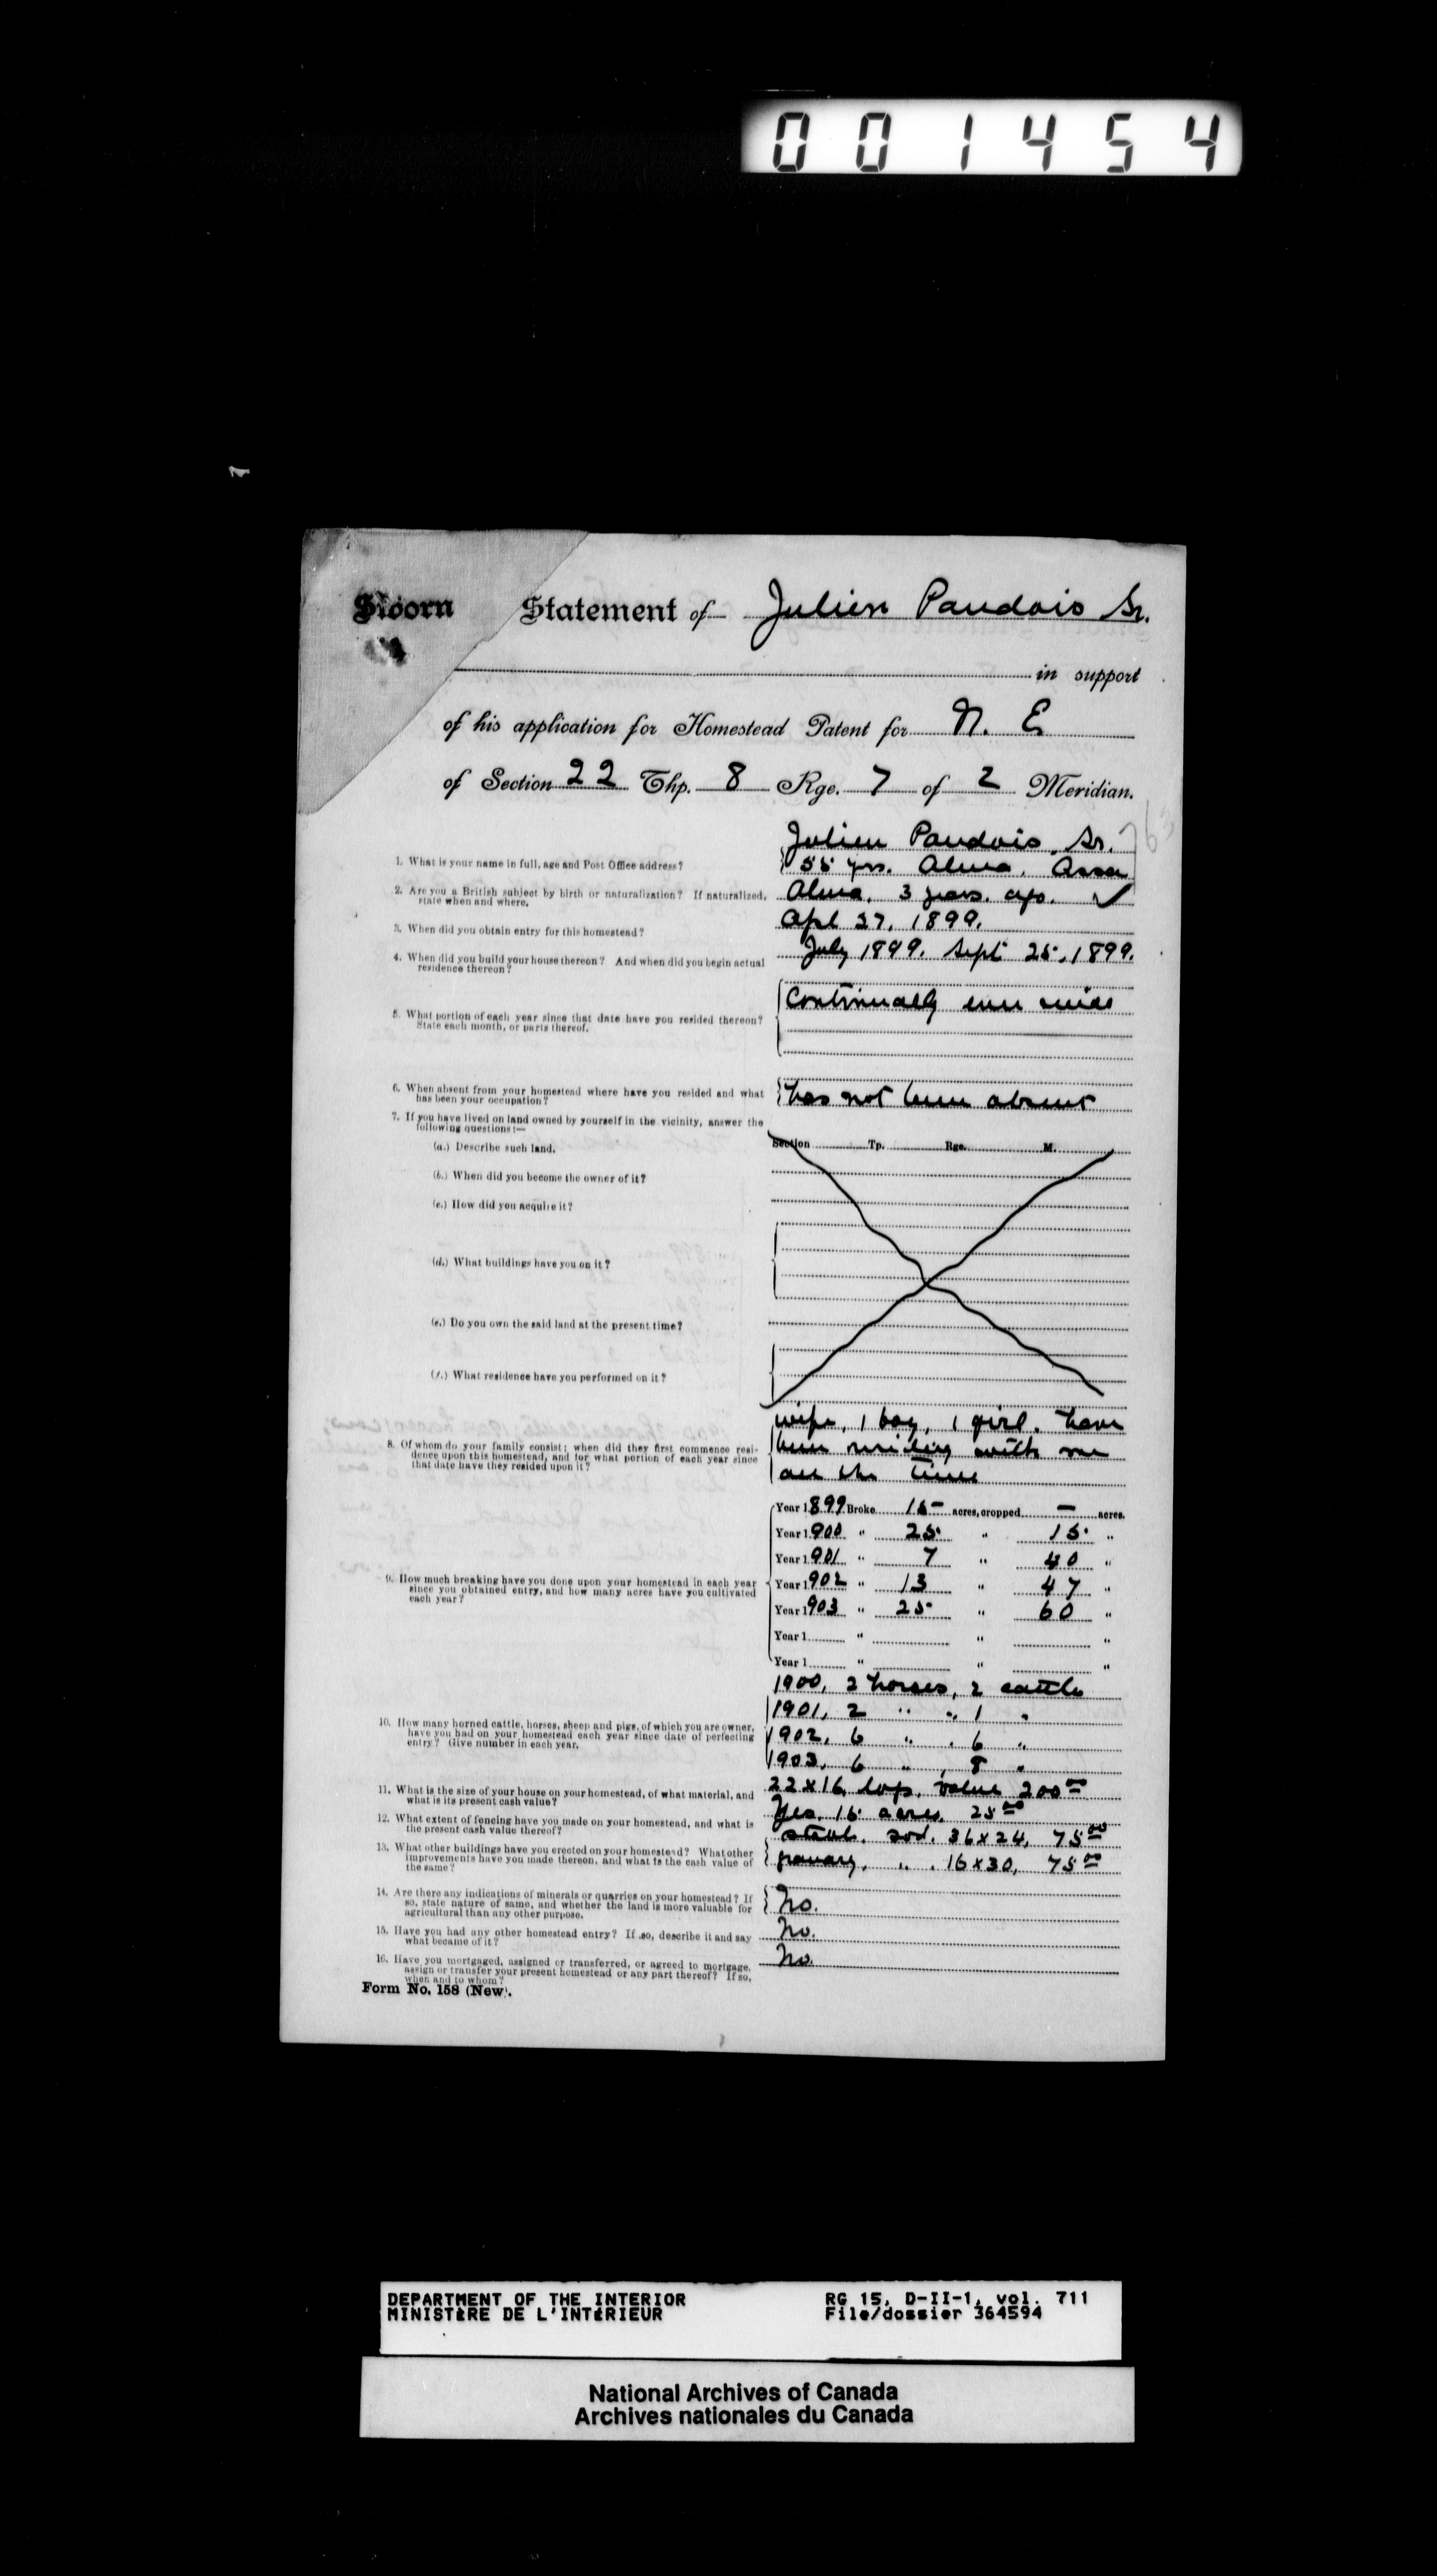 001454
Sworn Statement of Julien Paudois Sr.
in support
of his application for Homestead Patent for N. E
of Section 22 Thp. 8 Rge. 7 of 2 Meridian.
Julien Paudois, Sr.
1. What is your name in full, age and Post Office address? 55 yrs. Alma, Assa
2. Are you a British subject by birth or naturalization? If naturalized, state when and where. Alma, 3 years. ago. ✓
3. When did you obtain entry for this homestead? Apl 27, 1899.
4. When did you build your house thereon? And when did you begin actual residence thereon? July 1899. Sept 25, 1899.
5. What portion of each year since that date have you resided thereon? State each month, or parts thereof. Continually ever since
6. When absent from your homestead where have you resided and what has been your occupation? has not been absent
7. If you have lived on land owned by yourself in the vicinity, answer the following questions:—
(a.) Describe such land. Section Tp. Rge. M.
(b.) When did you become the owner of it?
(c.) How did you acquire it?
(d.) What buildings have you on it?
(e.) Do you own the said land at the present time?
(f.) What residence have you performed on it?
8. Of whom do your family consist; when did they first commence residence upon this homestead, and for what portion of each year since that date have they resided upon it?
wife, 1 boy, 1 girl. have
been residing with me
all the time
9. How much breaking have you done upon your homestead in each year since you obtained entry, and how many acres have you cultivated each year?
Year 1899 Broke 15 — acres, cropped — acres.
Year 1900 " 25 " 15 "
Year 1901 " 7 " 40 "
Year 1902 " 13 " 47 "
Year 1903 " 25 " 60 "
Year 1 " " "
Year 1 " " "
10. How many horned cattle, horses, sheep and pigs, of which you are owner, have you had on your homestead each year since date of perfecting entry? Give number in each year.
1900, 2 horses, 2 cattle
1901, 2 " , 1 "
1902, 6 " , 6 "
1903, 6 " , 8 "
11. What is the size of your house on your homestead, of what material, and what is its present cash value? 22 x 16, logs, value 200 00
12. What extent of fencing have you made on your homestead, and what is the present cash value thereof? Yes. 15 acres, 25 00
13. What other buildings have you erected on your homestead? What other improvements have you made thereon, and what is the cash value of the same?
stable. sod. 36 x 24, 75 00
granary, " . 16 x 30, 75 00
14. Are there any indications of minerals or quarries on your homestead? If so, state nature of same, and whether the land is more valuable for agricultural than any other purpose. No.
15. Have you had any other homestead entry? If so, describe it and say what became of it? No.
16. Have you mortgaged, assigned or transferred, or agreed to mortgage, assign or transfer your present homestead or any part thereof? If so, when and to whom? No.
Form No. 158 (New).
DEPARTMENT OF THE INTERIOR RG 15, D-II-1, vol. 711
MINISTÈRE DE L'INTÉRIEUR File/dossier 364594
National Archives of Canada
Archives nationales du Canada